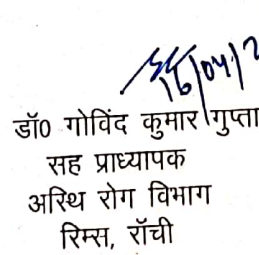 16/04/2
डॉ० गोविंद कुमार गुप्ता
सह प्राध्यापक
अस्थि रोग विभाग
रिम्स, राँची